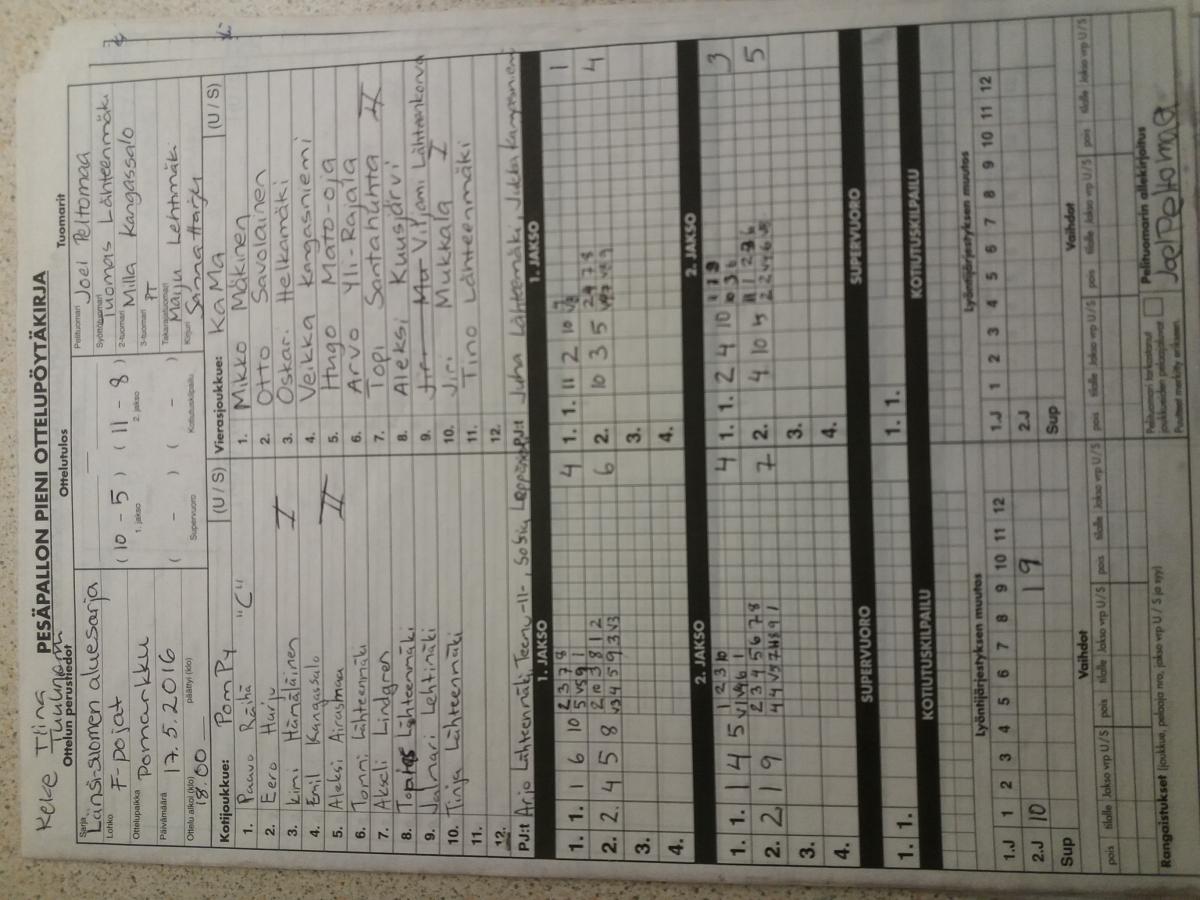 Keke Tiina
Tuunanen
PESÄPALLON PIENI OTTELUPÖYTÄKIRJA
Ottelun perustiedot Ottelutulos Tuomarit
Sarja Länsi-Suomen aluesarja
Lohko F-pojat
Ottelupaikka Pomarkku
Päivämäärä 17.5.2016
Ottelu alkoi (klo) 18.00 päättyi (klo)
( 10 - 5 ) ( 11 - 8 )
1. jakso 2. jakso
( - ) ( - )
Supervuoro Kotiutuskilpailu
Pelituomari Joel Peltomaa
Syöttötuomari Tuomas Lähteenmäki
2-tuomari Milla Kangassalo
3-tuomari PT
Takarajatuomari Maiju Lehtimäki
Kirjuri Sanna Harju
Kotijoukkue: PomPy (U / S)
1. Paavo Raihä "C"
2. Eero Harju
3. Kimi Hämäläinen I
4. Emil Kangassalo
5. Aleksi Airasmaa II
6. Tommi Lähteenmäki
7. Akseli Lindgren
8. Lähteenmäki
9. Jalmari Lehtimäki
10. Tinja Lähteenmäki
11.
12.
PJ:t Arjo Lähteenmäki, Teemu -11-,
Vierasjoukkue: KaMa (U / S)
1. Mikko Mäkinen
2. Otto Savolainen
3. Oskari Helkamäki
4. Veikka Kangasniemi
5. Hugo Mato-oja
6. Arvo Yli-Rajala
7. Topi Santahuhta II
8. Aleksi Kuusjärvi
9. Viljami Lähteenkorva
10. Jiri Mukkala I
11. Tino Lähteenmäki
12.
PJ:t Juha Lähteemäki, Jukka Kangasniemi
1. JAKSO 1. JAKSO
1. 1. 1 6 10 2 3 7 8 4
2. 2. 4 5 8 6
3.
4.
1. 1. 11 2 10 1
2. 10 3 5 4
3.
4.
2. JAKSO 2. JAKSO
1. 1. 1 4 5 1 2 3 10 4
2. 2 1 9 2 3 4 5 6 7 8 7
3.
4.
1. 1. 2 4 10 3
2. 4 10 5
3.
4.
SUPERVUORO SUPERVUORO
1. 1. 1. 1.
KOTIUTUSKILPAILU KOTIUTUSKILPAILU
Lyöntijärjestyksen muutos Lyöntijärjestyksen muutos
1.J 1 2 3 4 5 6 7 8 9 10 11 12 1.J 1 2 3 4 5 6 7 8 9 10 11 12
2.J 10 1 9 2.J
Sup Sup
Vaihdot Vaihdot
pois tilalle Jakso vrp U / S pois tilalle Jakso vrp U / S pois tilalle Jakso vrp U / S pois tilalle Jakso vrp U / S
Rangaistukset (joukkue, pelaaja nro, jakso vrp U / S ja syy)
Pelituomari tarkastanut joukkueiden pelaajapassit
Puutteet merkitty erikseen.
Pelituomarin allekirjoitus
Joel Peltomaa